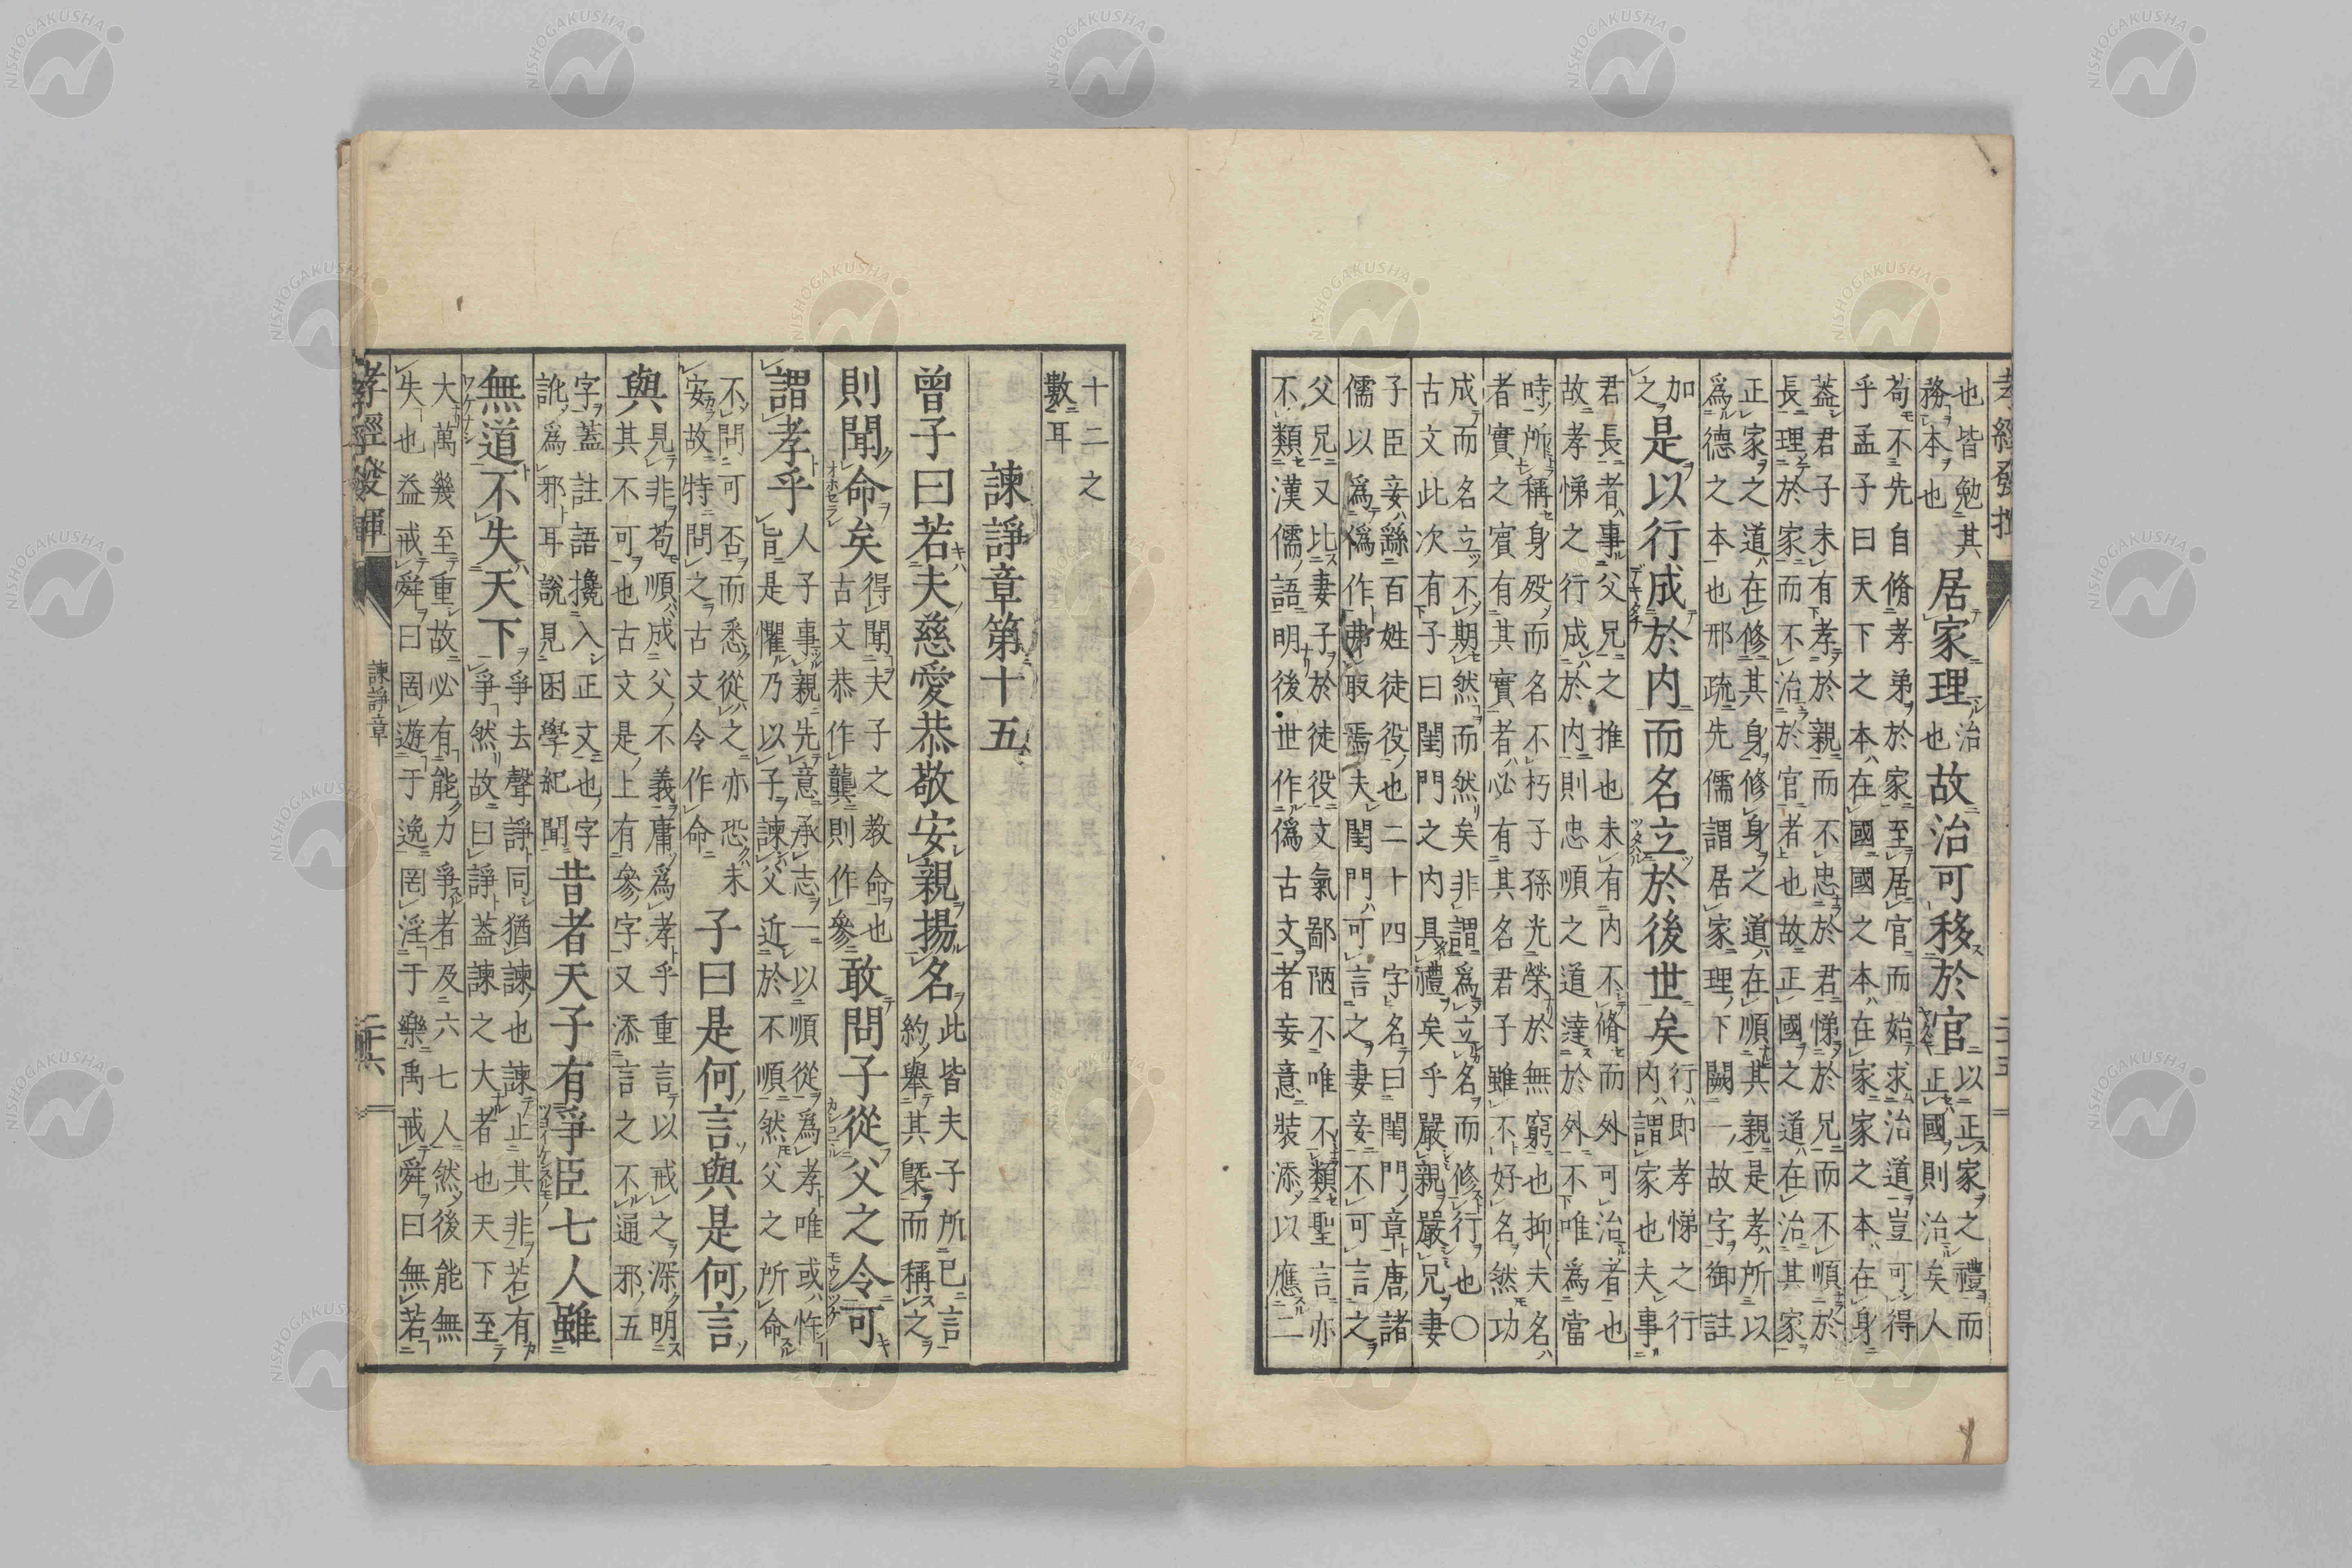 孝經發揮 二十五
也皆勉其
務本也
居家理
治
也
故治可移於官
以正家之禮而
正國則治矣人
苟不先自脩孝弟於家至居官而始求治道豈可得
乎孟子曰天下之本在國國之本在家家之本在身
蓋君子未有孝於親而不忠於君悌於兄而不順於
長理於家而不治於官者也故正國之道在治其家
正家之道在修其身修身之道在順其親是孝所以
爲德之本也邢疏先儒謂居家理下闕一故字御註
加
之
是以行成於内而名立於後世矣
行即孝悌之行
内謂家也夫事
君長者事父兄之推也未有内不脩而外可治者也
故孝悌之行成於内則忠順之道達於外不唯爲當
時所稱身歿而名不朽子孫光榮於無窮也抑夫名
者實之賓有其實者必有其名君子雖不好名然功
成而名立不期然而然矣非謂爲立名而修行也〇
古文此次有子曰閨門之内具禮矣乎嚴親嚴兄妻
子臣妾繇百姓徒役也二十四字名曰閨門章唐諸
儒以爲僞作弗取焉夫閨門可言之妻妾不可言之
父兄又比妻子於徒役文氣鄙陋不唯不類聖言亦
不類漢儒語明後世作僞古文者妄意裝添以應二
十二之
數耳
諫諍章第十五
曾子曰若夫慈愛恭敬安親揚名
此皆夫子所已言
約舉其槩而稱之
則聞命矣
得聞夫子之教命也
古文恭作龔則作參
敢問子從父之令可
謂孝乎
人子事親先意承志一以順從爲孝唯或忤
旨是懼乃以子諫父近於不順然父之所命
不問可否而悉從之亦恐未
安故特問之古文令作命
子曰是何言與是何言
與
見非苟順成父不義庸爲孝乎重言以戒之深明
其不可也古文是上有參字又添言之不通邪五
字蓋註語攙入正文也字
訛爲邪耳説見困學紀聞
昔者天子有爭臣七人雖
無道不失天下
爭去聲諍同猶諫也諫止其非若有
爭然故曰諍蓋諫之大者也天下至
大萬幾至重故必有能力爭者及六七人然後能無
失也益戒舜曰罔遊于逸罔淫于樂禹戒舜曰無若
孝經發揮 諫諍章 二十六
NISHOGAKUSHA